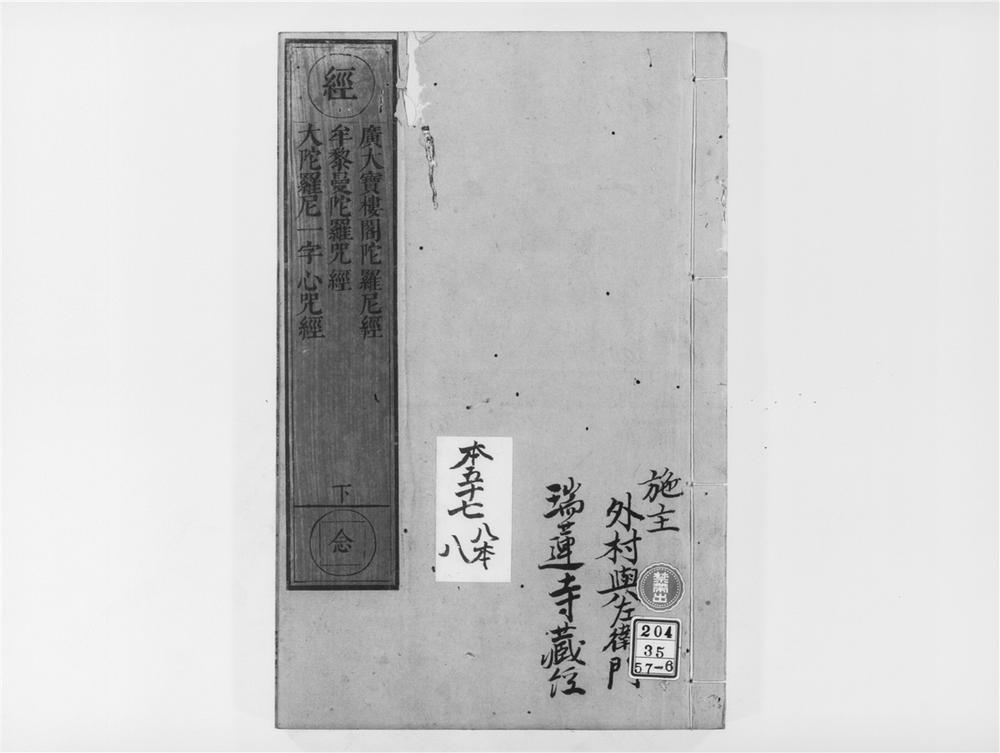 經
廣大寶樓閣陀羅尼經
牟黎曼陀羅咒經
大陀羅尼一字心咒經
下
念
施主
外村與左衛門
瑞蓮寺藏經
本五十七
八本
八
禁帶出
204
35
57-6